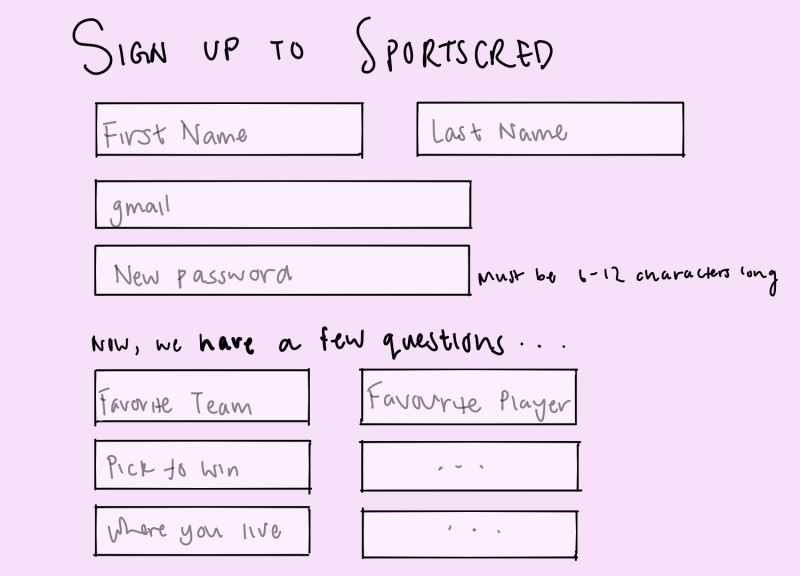 SIGN UP TO SPORTSCRED
First Name Last Name
gmail
New password Must be 6-12 characters long
Now, we have a few questions...
Favorite Team Favourite Player
Pick to win ...
Where you live ...